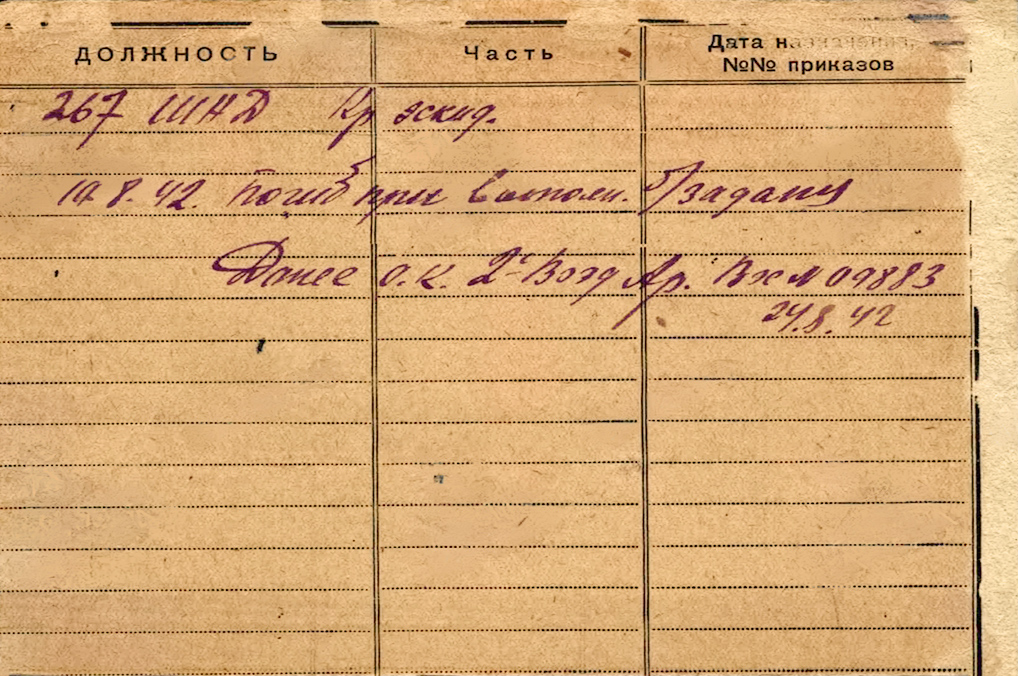 ДОЛЖНОСТЬ Часть Дата назначения
№№ приказов
267 ШАД Кр эскид.
8.42. Погиб при выполн. б/задания
О.К. 2й Возд Ар. Вх № 09883
24.8.42